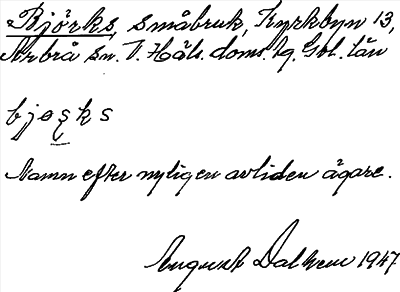 Björks, småbruk, Kyrkbyn 13,
Arbrå sn. V. Häls. doms. hg. Gbl. län
bjoşks
Namn efter nyligen avliden ägare.
August Dalhem 1947